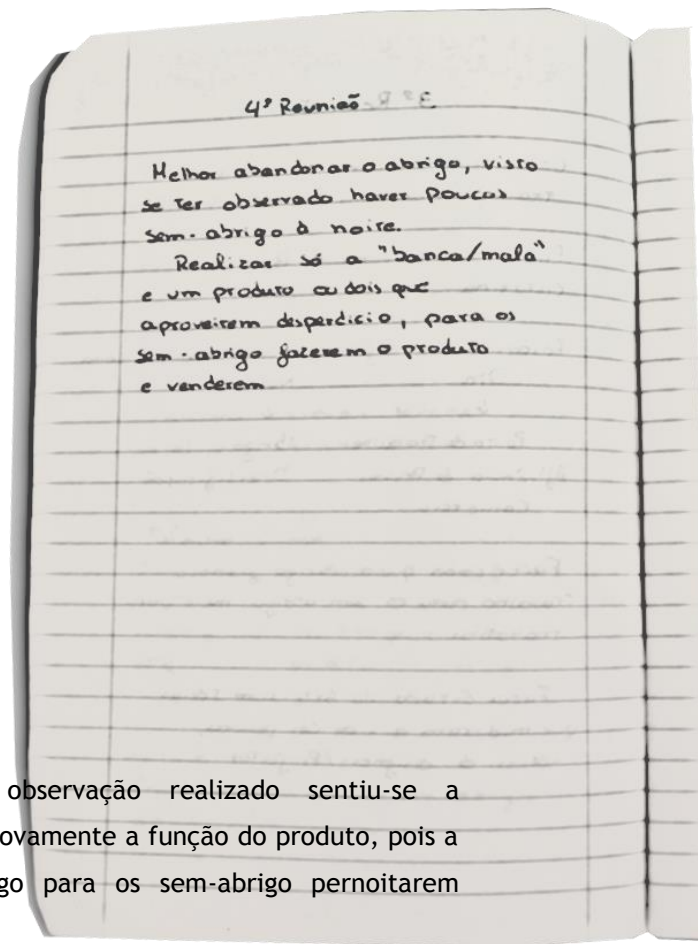 4ª Reunião
Melhor abandonar o abrigo, visto
se ter observado haver poucos
sem-abrigo à noite.
Realizar só a "banca/mala"
e um produto ou dois que
aproveitem desperdício, para os
sem-abrigo fazerem o produto
e venderem
observação realizado sentiu-se a
ovamente a função do produto, pois a
go para os sem-abrigo pernoitarem